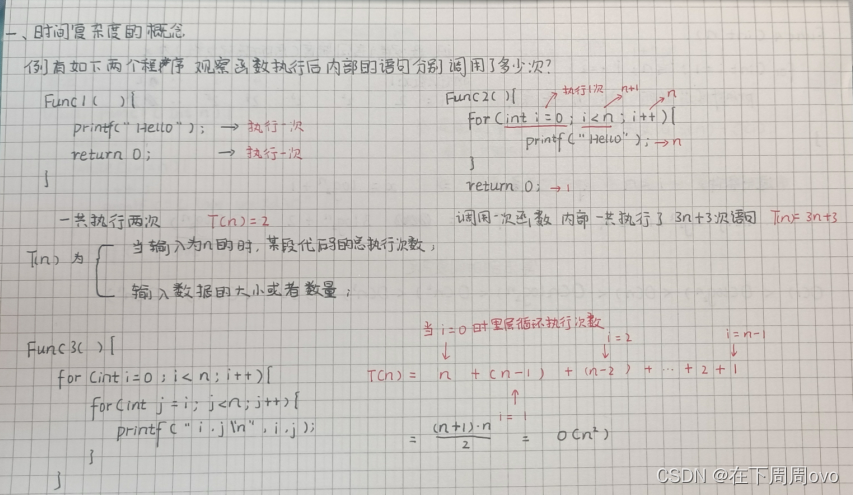 一、时间复杂度的概念
例有如下两个程序 观察函数执行后内部的语句分别调用了多少次?
Func1( ){
printf("Hello"); → 执行一次
return 0; → 执行一次
}
一共执行两次 T(n)=2
执行1次 n+1 n
Func2( ){
for(int i=0; i<n; i++){
printf("Hello"); → n
}
return 0; → 1
调用一次函数 内部一共执行了 3n+3次语句 T(n)=3n+3
T(n) 为
当输入为n的时, 某段代码的总执行次数;
输入数据的大小或者数量;
Func3( ){
for(int i=0; i<n; i++){
for(int j=i; j<n; j++){
printf("i.j\n", i.j);
}
}
当i=0时里层循环执行次数
i=2 i=n-1
T(n) = n + (n-1) + (n-2) + … + 2 + 1
i=1
= (n+1)·n / 2 = O(n²)
CSDN @在下周周ovo